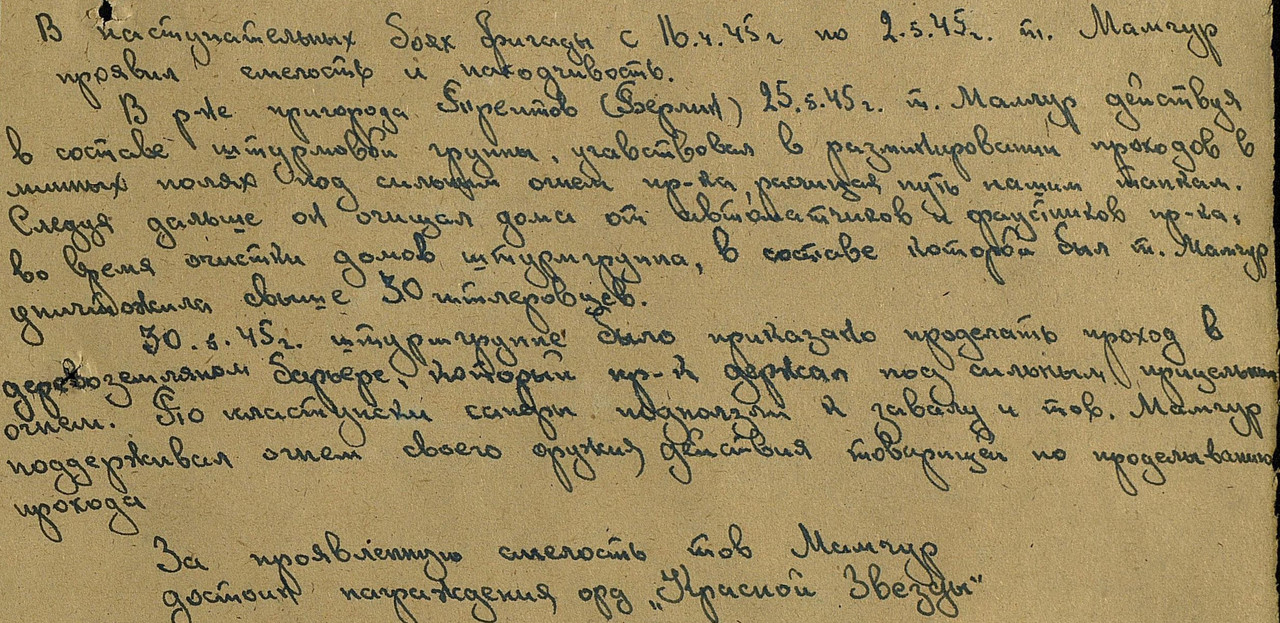 В наступательных боях бригады с 16.4.45г по 2.5.45г. т. Мамчур
проявил смелость и находчивость.
В р-не пригорода Трептов (Берлин) 25.4.45г. т. Мамчур действуя
в составе штурмовой группы, участвовал в разминировании проходов в
минных полях под сильным огнем пр-ка, расчищая путь нашим танкам.
Следуя дальше он очищал дома от автоматчиков и фаустников пр-ка;
во время очистки домов штурмгруппа, в составе которой был т. Мамчур
уничтожила свыше 30 гитлеровцев.
30.4.45г. штурмгруппе было приказано проделать проход в
деревоземляном барьере, который пр-к держал под сильным прицельным
огнем. По пластунски саперы подползли к завалу и тов. Мамчур
поддерживал огнем своего оружия действия товарищей по проделыванию
прохода
За проявленную смелость тов Мамчур
достоин награждения орд „Красной Звезды"